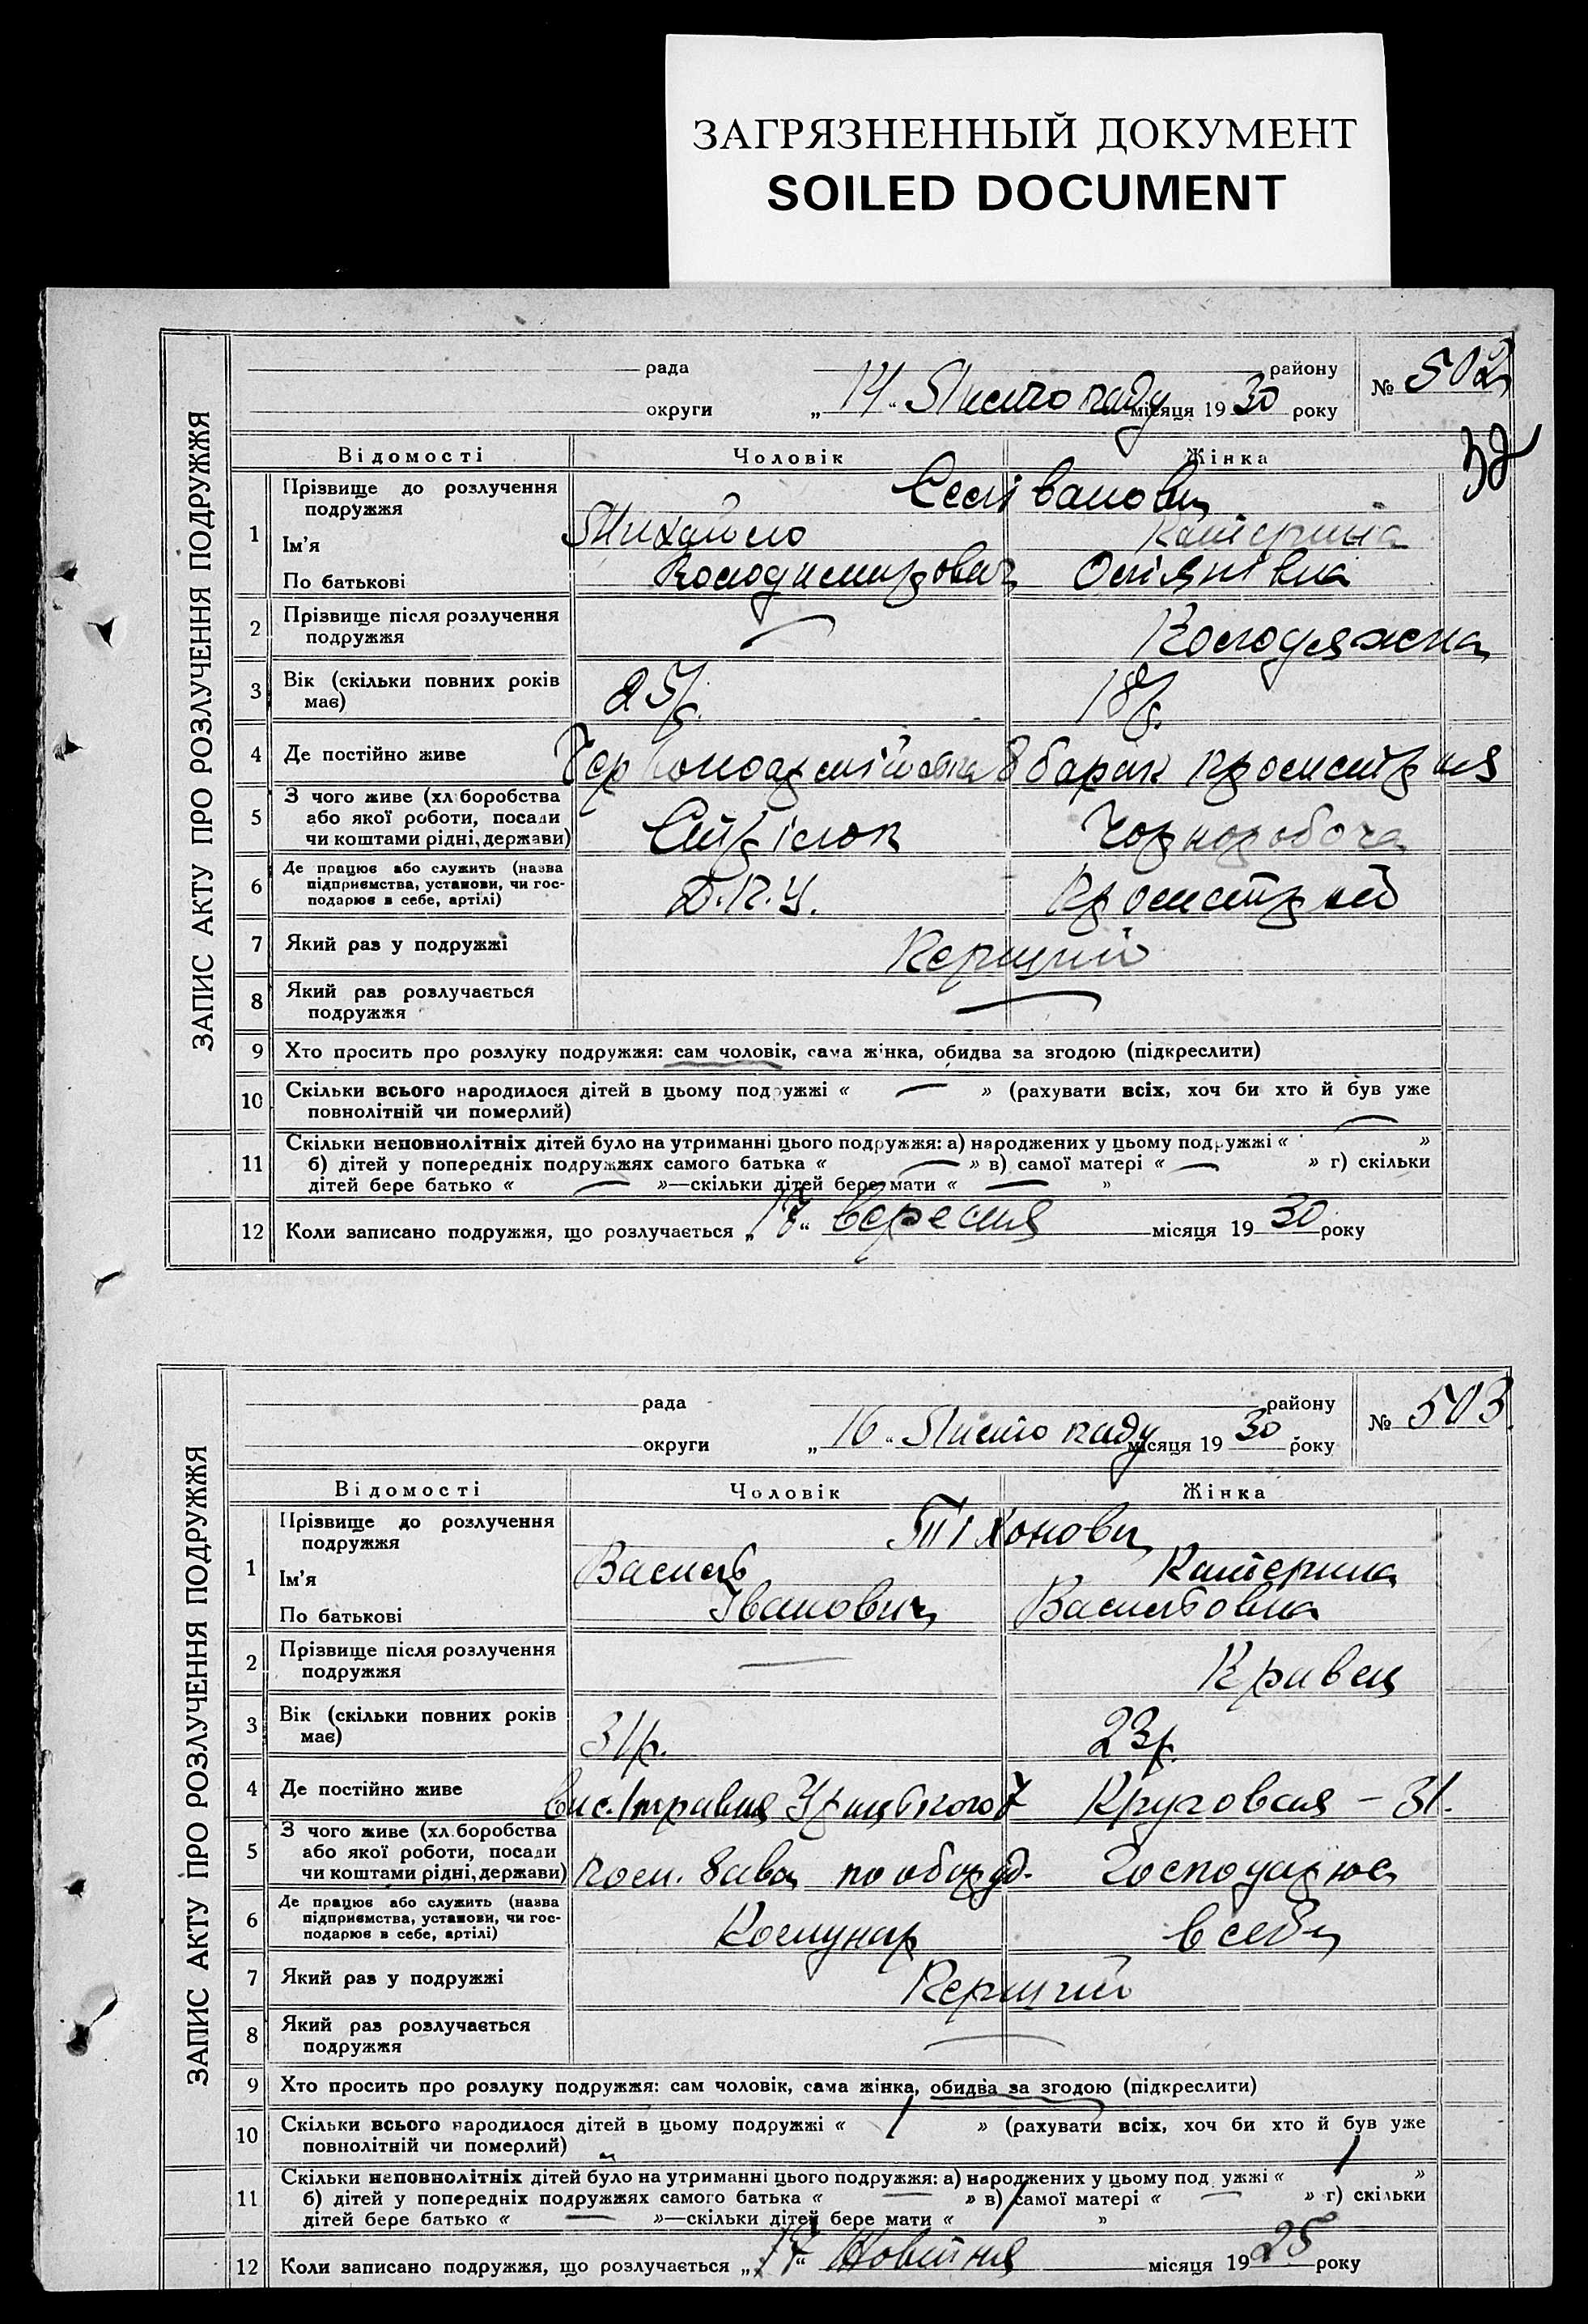 ЗАГРЯЗНЕННЫЙ ДОКУМЕНТ
SOILED DOCUMENT
ЗАПИС АКТУ ПРО РОЗЛУЧЕННЯ ПОДРУЖЖЯ
рада району № 502
округи „14“ Листопаду місяця 1930 року
32
Відомості Чоловік Жінка
1 Прізвище до розлучення подружжя Селіванови
Ім'я Михайло Катерина
По батькові Володимирович
2 Прізвище після розлучення подружжя — Колодяжна
3 Вік (скільки повних років має) 25 р. 18 р.
4 Де постійно живе Червоноармійська 8 барак Промстроя
5 З чого живе (хл боробства або якої роботи, посади чи коштами рідні, держави) Стрілок Чорноробоча
6 Де працює або служить (назва підприємства, установи, чи господарює в себе, артілі) Д.П.У. Промстрой
7 Який раз у подружжі Перший
8 Який раз розлучається подружжя —
9 Хто просить про розлуку подружжя: сам чоловік, сама жінка, обидва за згодою (підкреслити)
10 Скільки всього народилося дітей в цьому подружжі « — » (рахувати всіх, хоч би хто й був уже
повнолітній чи померлий)
11 Скільки неповнолітніх дітей було на утриманні цього подружжя: а) народжених у цьому подружжі « — »
б) дітей у попередніх подружжях самого батька « — » в) самої матері « — » г) скільки
дітей бере батько « — »—скільки дітей бере мати « — »
12 Коли записано подружжя, що розлучається „17“ вересня місяця 1930 року
ЗАПИС АКТУ ПРО РОЗЛУЧЕННЯ ПОДРУЖЖЯ
рада району № 503.
округи „16“ Листопаду місяця 1930 року
Відомості Чоловік Жінка
1 Прізвище до розлучення подружжя Тіхонови
Ім'я Василь Катерина
По батькові Іванович Васильовна
2 Прізвище після розлучення подружжя — Кравец
3 Вік (скільки повних років має) 31 р. 23 р.
4 Де постійно живе вис. 1 травня Урицького 7 Круговая – 31.
5 З чого живе (хл боробства або якої роботи, посади чи коштами рідні, держави) пом. Зава по оборуд. Господарює
6 Де працює або служить (назва підприємства, установи, чи господарює в себе, артілі) Комунар в себе
7 Який раз у подружжі Перший
8 Який раз розлучається подружжя —
9 Хто просить про розлуку подружжя: сам чоловік, сама жінка, обидва за згодою (підкреслити)
10 Скільки всього народилося дітей в цьому подружжі « 1 » (рахувати всіх, хоч би хто й був уже
повнолітній чи померлий)
11 Скільки неповнолітніх дітей було на утриманні цього подружжя: а) народжених у цьому подружжі « 1 »
б) дітей у попередніх подружжях самого батька « — » в) самої матері « — » г) скільки
дітей бере батько « — »—скільки дітей бере мати « 1 »
12 Коли записано подружжя, що розлучається „17“ Жовтня місяця 1925 року